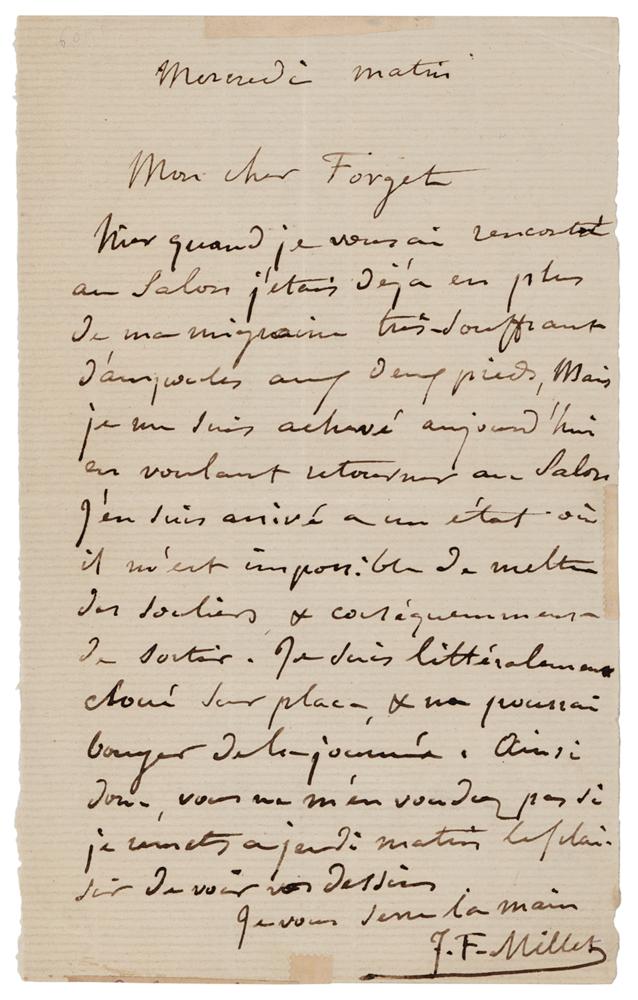 Mercredi matin
Mon cher Forget
Hier quand je vous ai rencontré
au Salon j'étais déja en plus
de ma migraine très-souffrant
d'ampoules aux deux pieds, Mais
je me suis achevé aujourd'hui
en voulant retourner au Salon
J'en suis arrivé a un état où
il m'est impossible de mettre
des souliers & conséquemment
de sortir. Je suis littéralement
cloué sur place, & ne pourrai
bouger de la journée. Ainsi
donc, vous ne m'en voudrez pas si
je remets a jeudi matin le plai-
sir de voir vos dessins
Je vous serre la main
J. F. Millet